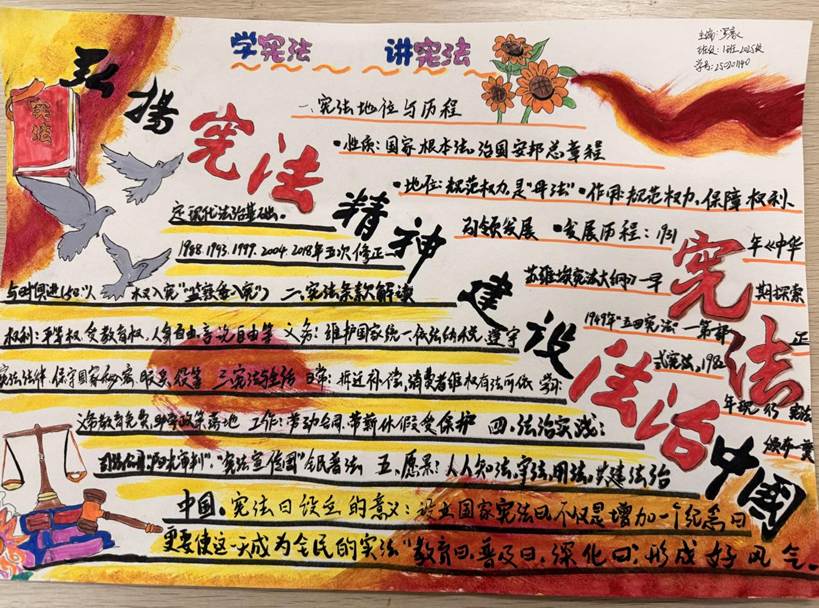 学宪法 讲宪法
班级：1班
弘扬
宪法
宪法
精神
建设
宪法
法治
中国
一、宪法地位与历程
·性质：国家根本法，治国安邦总章程
·地位：规范权力，是“母法”·作用：规范权力，保障权利、
引领发展 ·发展历程：1931
年《中华
苏维埃宪法大纲》一早
期探索
1949年“五四宪法”一第一部
正
式宪法，1982
年现行 宪法
定现代法治基础。
1988.1993.1999.2004.2018年五次修正
与时俱进 入宪“监察委入宪”） 二、宪法条款解读
权利：平等权，受教育权，人身自由，言论自由等 义务：维护国家统一，依法纳税，遵守
宪法法律，保守国家秘密，服兵役等 三、宪法与生活 日常：拆迁补偿，消费者维权有法可依 学习：
义务教育免费，助学政策落地 工作：劳动合同，带薪休假受保护 四、法治实践：
“阳光审判”，“宪法宣传周”全民普法 五、愿景：人人知法，守法，用法，共建法治
中国。宪法日设立的意义：设立国家宪法日，不仅是增加一个纪念日
更要使这一天成为全民的宪法“教育日，普及日，深化日，形成好风气。